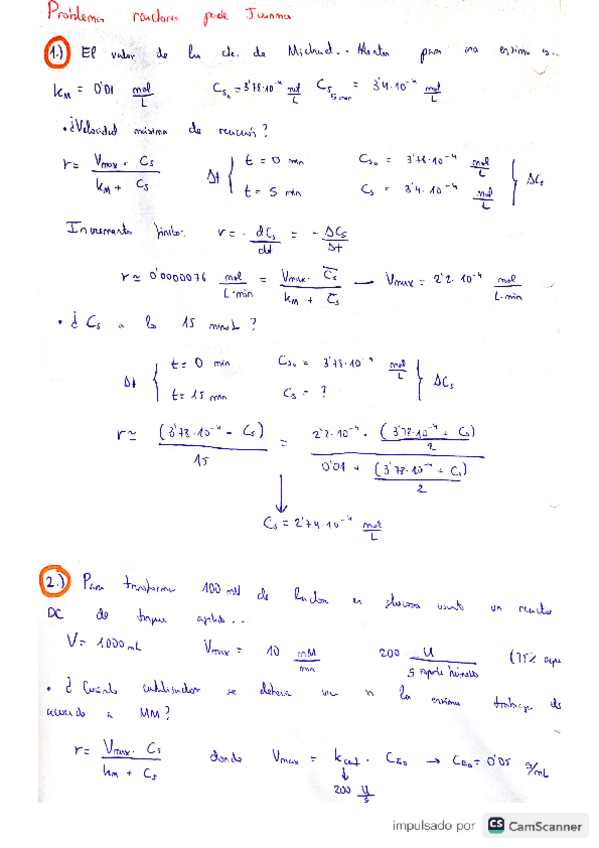 Problemas reactores parte Juanma
1.) El valor de la cte. de Michael.. Menten para una enzima es..
KM = 0'01 mol/L CSo = 3'78·10⁻⁴ mol/L CS5min = 3'4·10⁻⁴ mol/L
• ¿Velocidad máxima de reacción?
r = Vmax · CS / KM + CS Δt { t = 0 min CSo = 3'78·10⁻⁴ mol/L } ΔCS
t = 5 min CS = 3'4·10⁻⁴ mol/L
Incrementos finitos: r = - dCS/dt = - ΔCS/Δt
r ≃ 0'0000076 mol/L·min = Vmax · C̅S / KM + C̅S — Vmax = 2'2·10⁻⁴ mol/L·min
• ¿ CS a los 15 minutos ?
Δt { t = 0 min CSo = 3'78·10⁻⁴ mol/L } ΔCS
t = 15 min CS = ?
r ≃ (3'78·10⁻⁴ - CS) / 15 = 2'2·10⁻⁴ · (3'78·10⁻⁴ + CS)/2 / 0'01 + (3'78·10⁻⁴ + CS)/2
↓
CS = 2'74·10⁻⁴ mol/L
2.) Para transformar 100 de lactosa en glucosa usando un reactor
DC de tanque agitado..
V = 1000 mL Vmax = 10 mM/min 200 U / g soporte húmedo (75% agua
• ¿Cuánto catalizador se debera usar si la enzima trabaja de
acuerdo a MM?
r = Vmax · CS / KM + CS donde Vmax = kcat · CEo → CEo = 0'05 g/mL
↓
200 U/g
impulsado por CS CamScanner